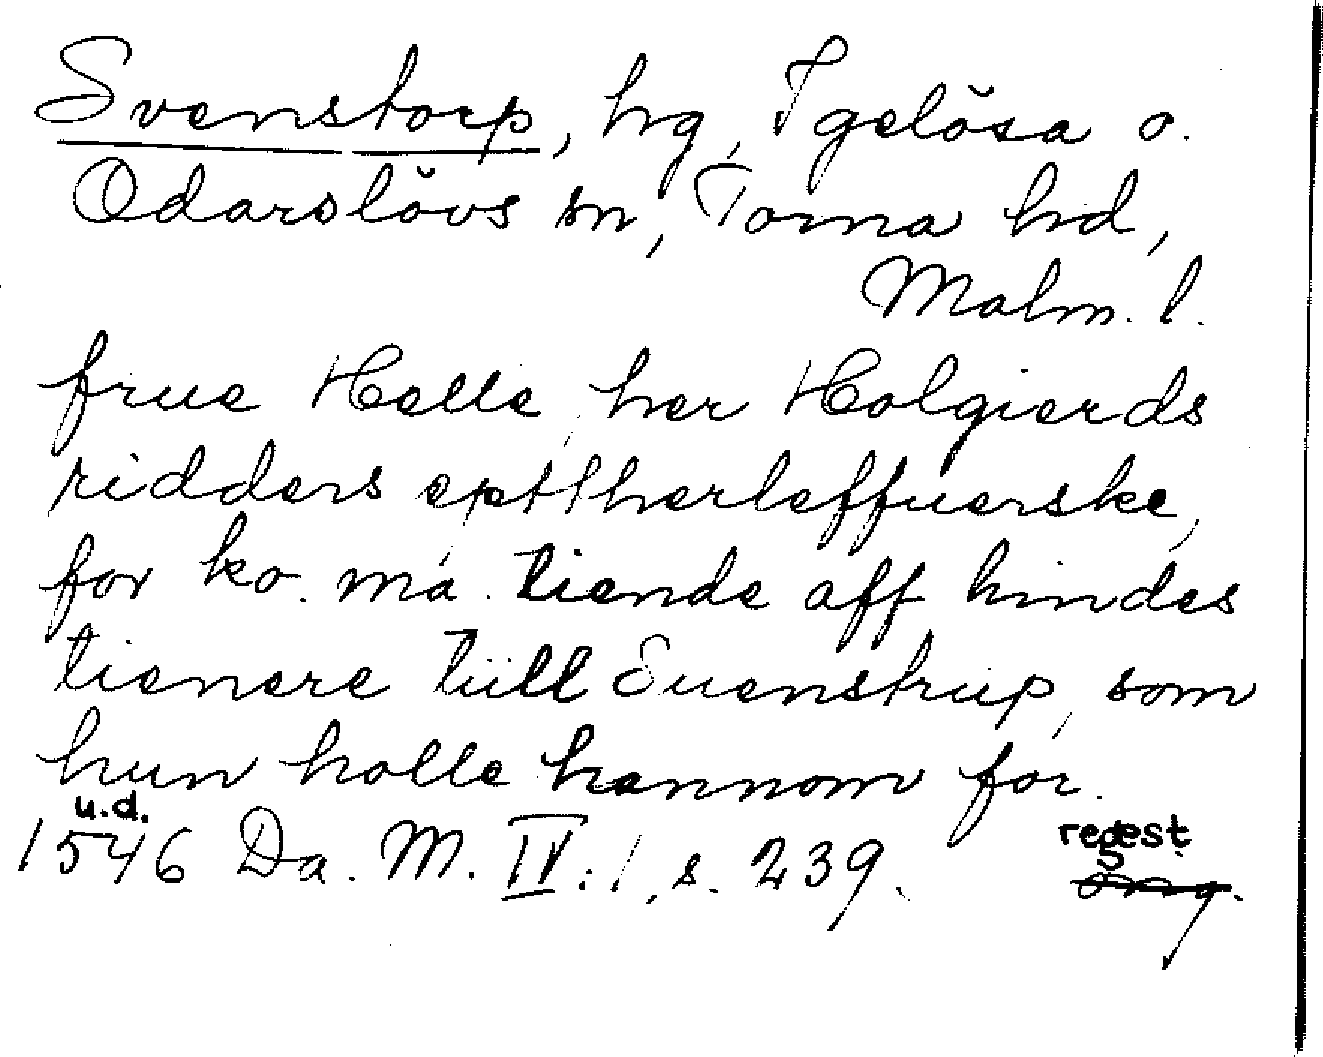 Svenstorp, hg, Igelösa o.
Odarslövs sn, Torna hd,
Malm. l.
frue Helle, her Holgierds
ridders epttherleffuerske,
for ko. ma. tiende aff hindes
tienere tiill Suenstrup, som
hun holle hannom for.
u.d.
1546 Da. M. IV:1, s. 239.
regest